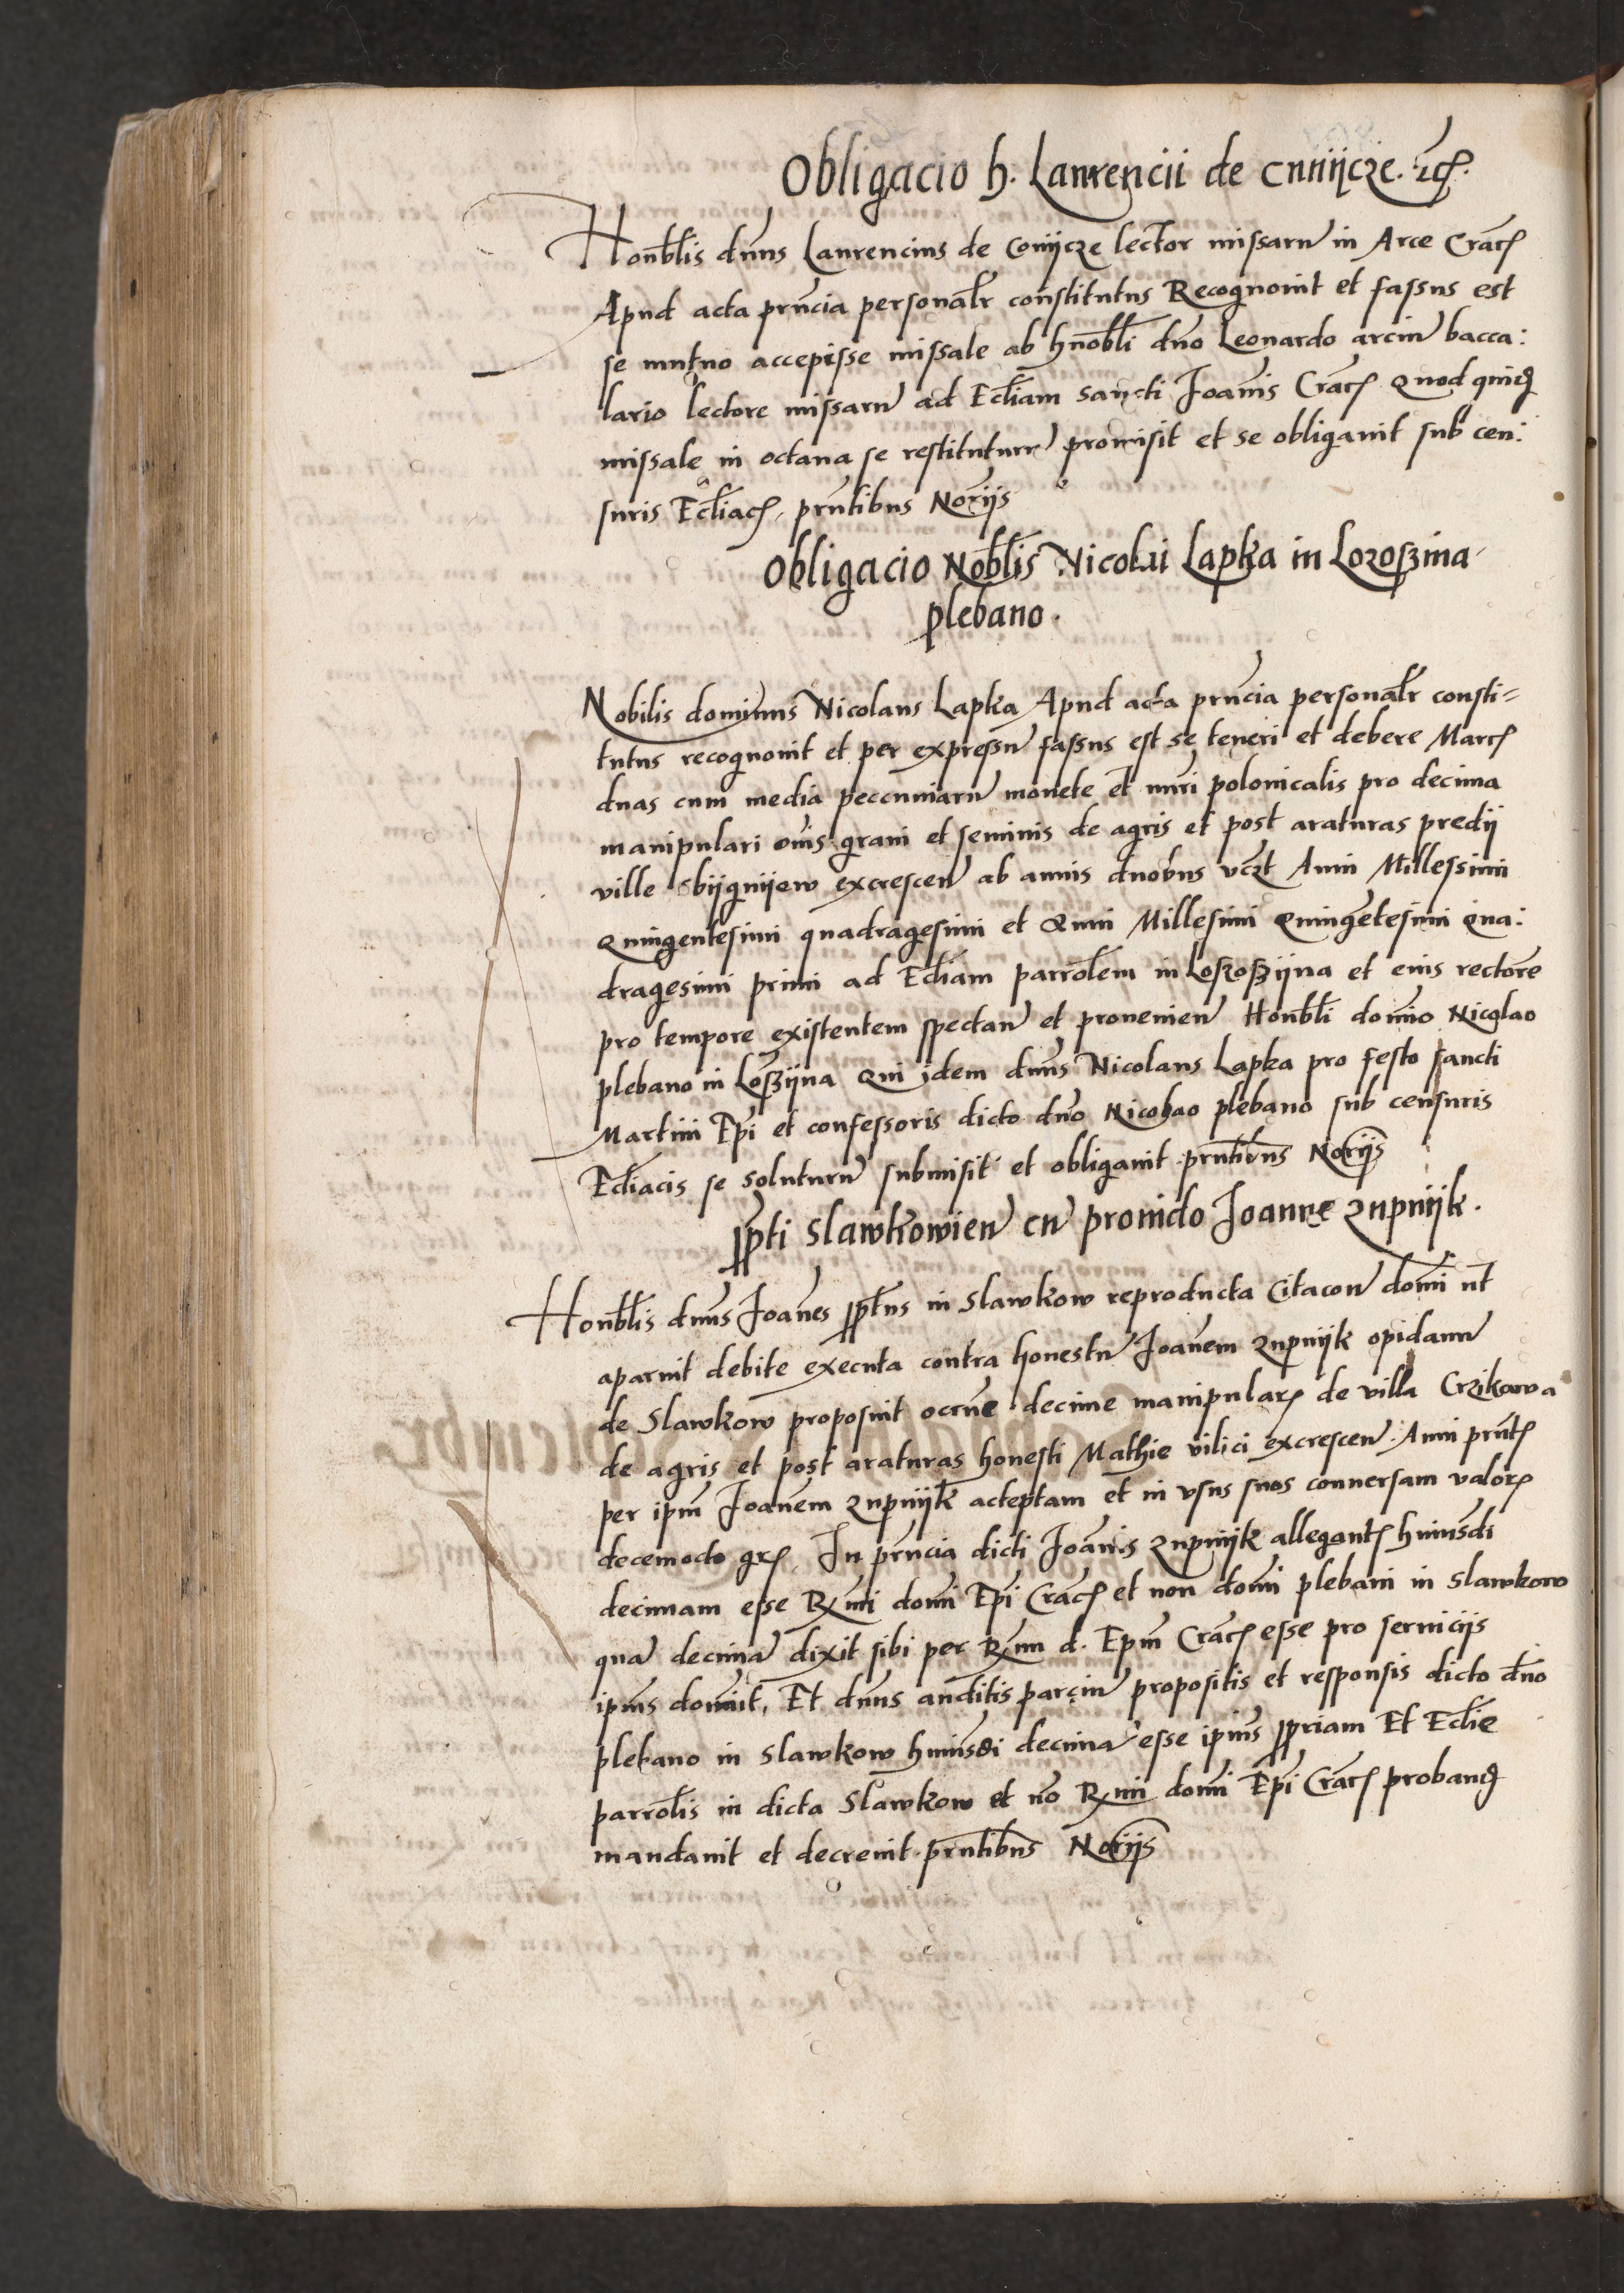 Obligacio h. Laurencii de Cnuijcze. etc.
Honoblis dnus Laurencius de Conijcze lector missaru in Arce Crac
Apud acta pruncia personalr constitutus Recognouit et fassus est
se mutuo accepisse missale ab honobli dno Leonardo arciu bacca:
lario lectore missaru ad Eccliam sancti Joanis Crac Quod quid
missale in octaua se restituturu promisit et se obligauit sub cen:
suris Eccliac, pruntibus Noriis
Obligacio Noblis Nicolai Lapka in Lozoszina
plebano.
Nobilis dominus Nicolaus Lapka Apud acta pruncia personalr consti=
tutus recognouit et per expressu fassus est se teneri et debere Marc
duas cum media peccuniaru monete et nuri polonicalis pro decima
manipulari ouis grani et seminis de agris et post araturas predij
ville Sbijgnijew excrescen ab annis duobus vczt Anni Millessimi
Quingentesimi quadragesimi et Anni Millesimi Quingetesimi Qua:
dragesimi primi ad Eccliam parrolem in Loszoszijna et eius rectore
pro tempore existentem spectan et prouenien Honobli domino Nicolao
plebano in Loszijna Qui idem dnus Nicolaus Lapka pro festo sancti
Martini Epi et confessoris dicto dno Nicolao plebano sub censuris
Eccliacis se soluturu submisit et obligauit pruntibus Noriis
ppti Slawkowien cu prouido Joanne Zupnijk.
Honoblis dnus Joanes pptus in Slawkow reproducta Citacon domi ut
aparuit debite executa contra honestu Joanem Zupnijk opidanu
de Slawkow proposuit ocrne decime manipular de villa Crzikawa
de agris et post araturas honesti Mathie vilici excrescen Anni prnt
per ipm Joanem Zupnijk acteptam et in vsus suos conuersam valor
decemocto gr. In pruncia dicti Joanis Zupnijk allegant huiusdi
decimam esse Rmi domi Epi Crac et non domi plebani in Slawkow
qua decima dixit sibi per Rmu d. Epm Crac esse pro seruiciis
ipius donuit, Et dnus auditis parciu propositis et responsis dicto dno
plebano in Slawkow huiusdi decima esse ipius ppriam Et Ecclie
parrolis in dicta Slawkow et no Rmi domi Epi Crac proband
mandauit et decreuit pruntibus Noriis